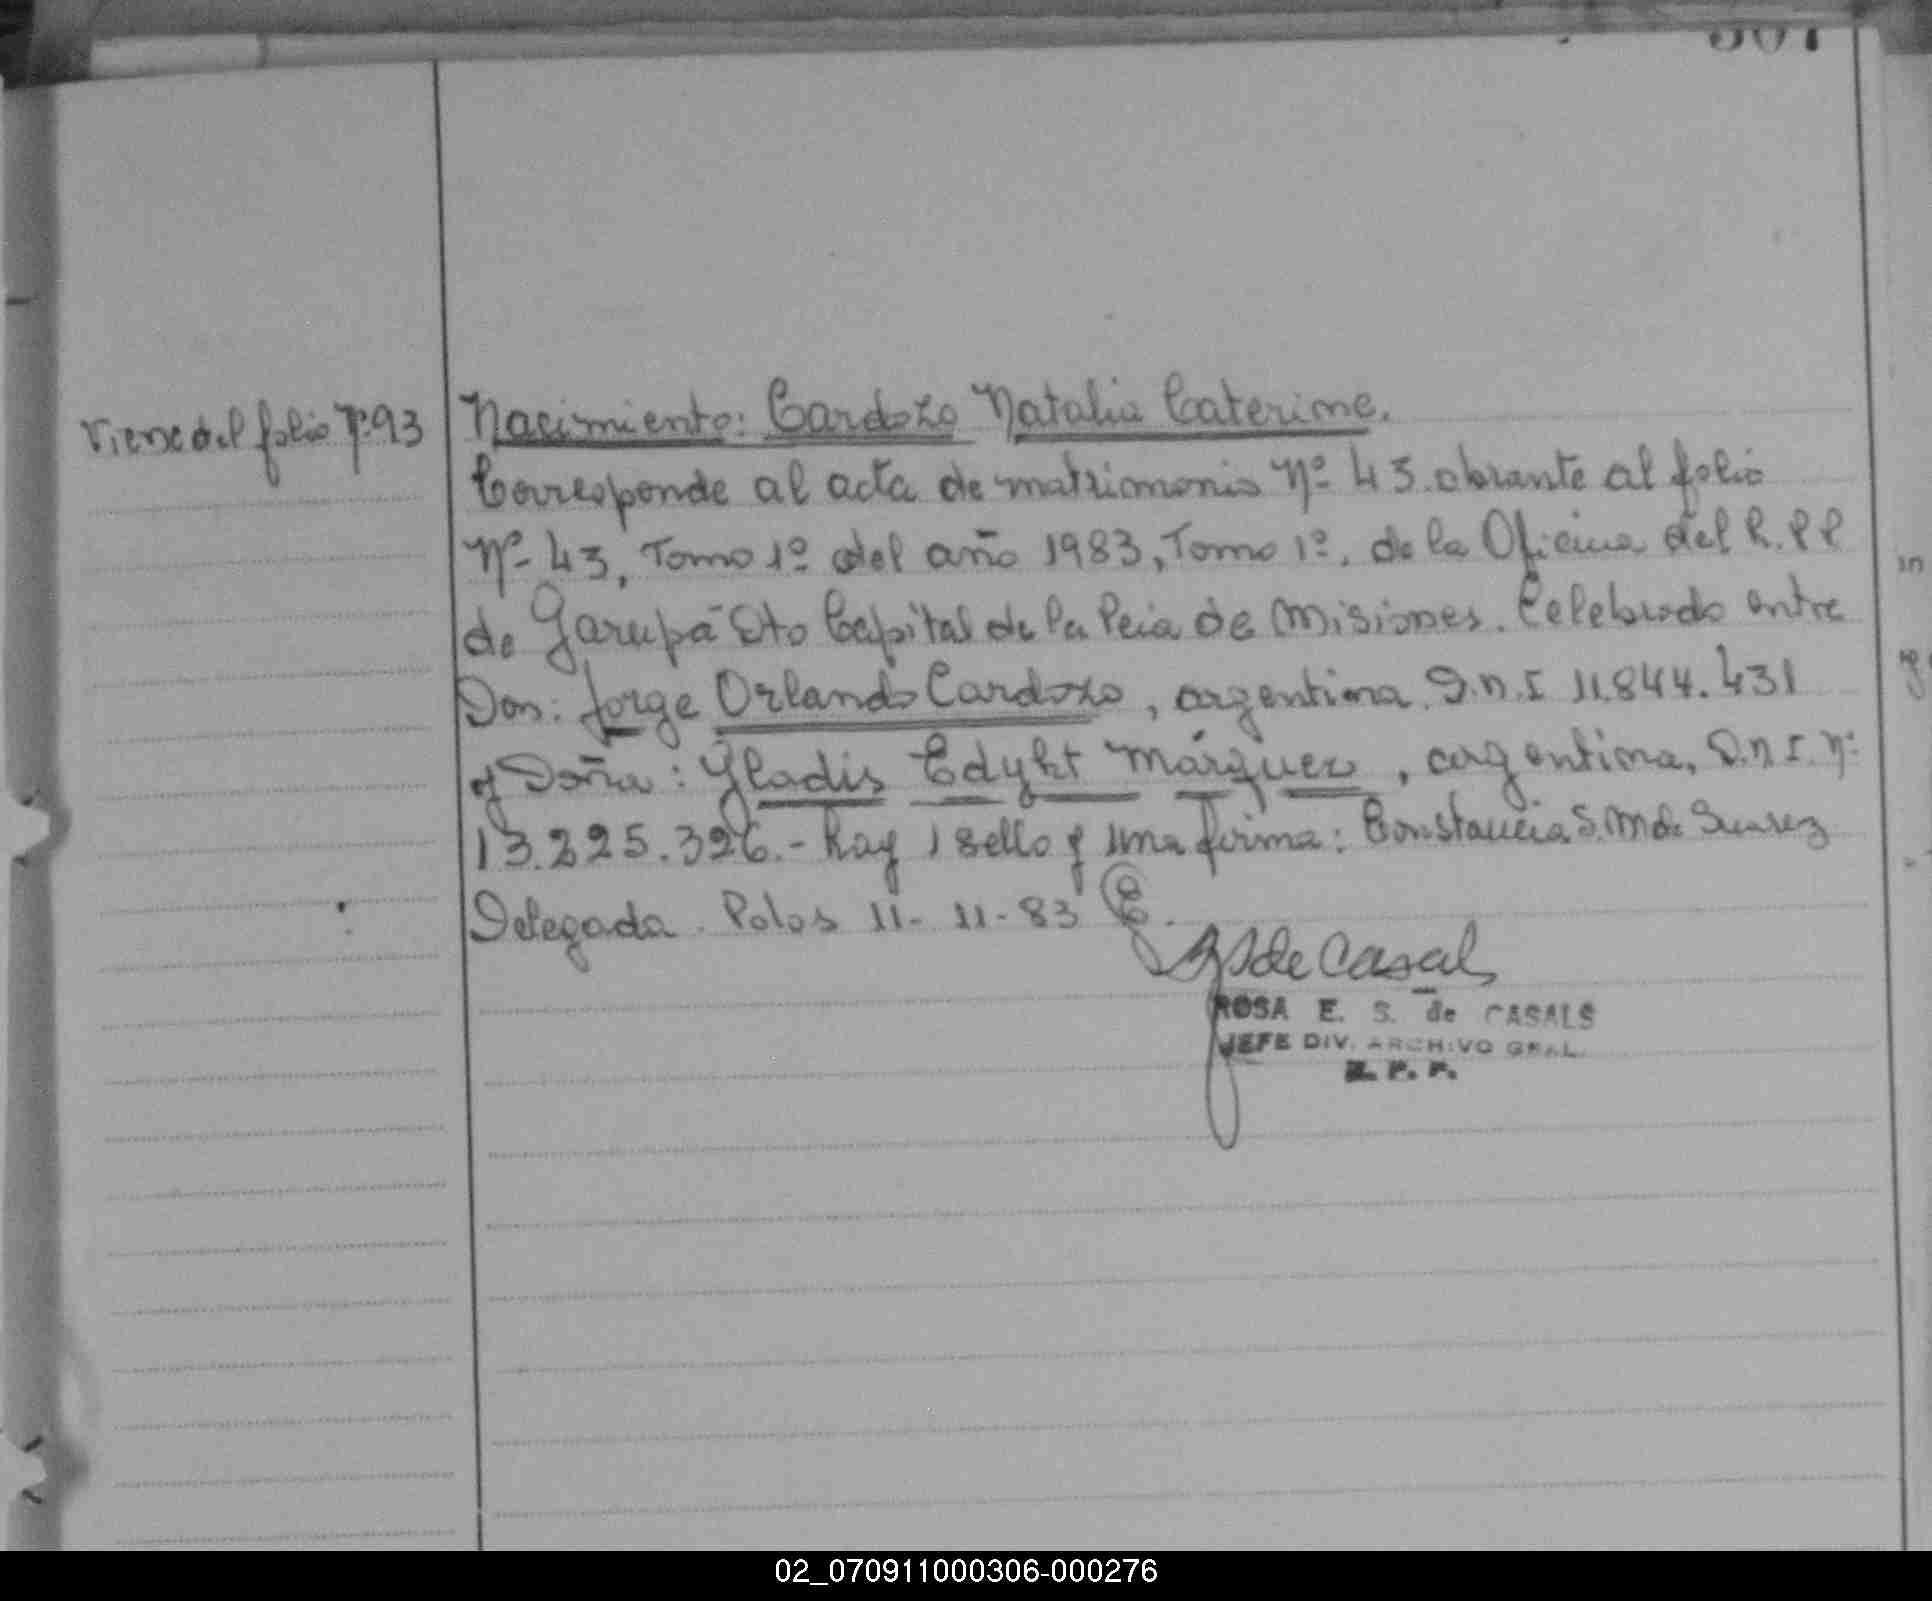 Viene del folio Nº 93
Nacimiento: Cardozo Natalia Caterine.
Corresponde al acta de matrimonio Nº 43. obrante al folio
Nº 43, Tomo 1º del año 1983, Tomo 1º. de la Oficina del R.P.P
de Garupá Dto Capital de la Pcia de Misiones. Celebrado entre
Don: Jorge Orlando Cardozo, argentina. D.N.I 11.844.431
y Doña: Gladis Edyht Márquez, argentina, D.N.I. Nº
13.225.326.- hay 1 sello y una firma: Constancia S. M de Suarez
Delegada. Pdas 11-11-83
de Casals
ROSA E. S. de CASALS
JEFE DIV. ARCHIVO GRAL.
R. P. P.
02_070911000306-000276